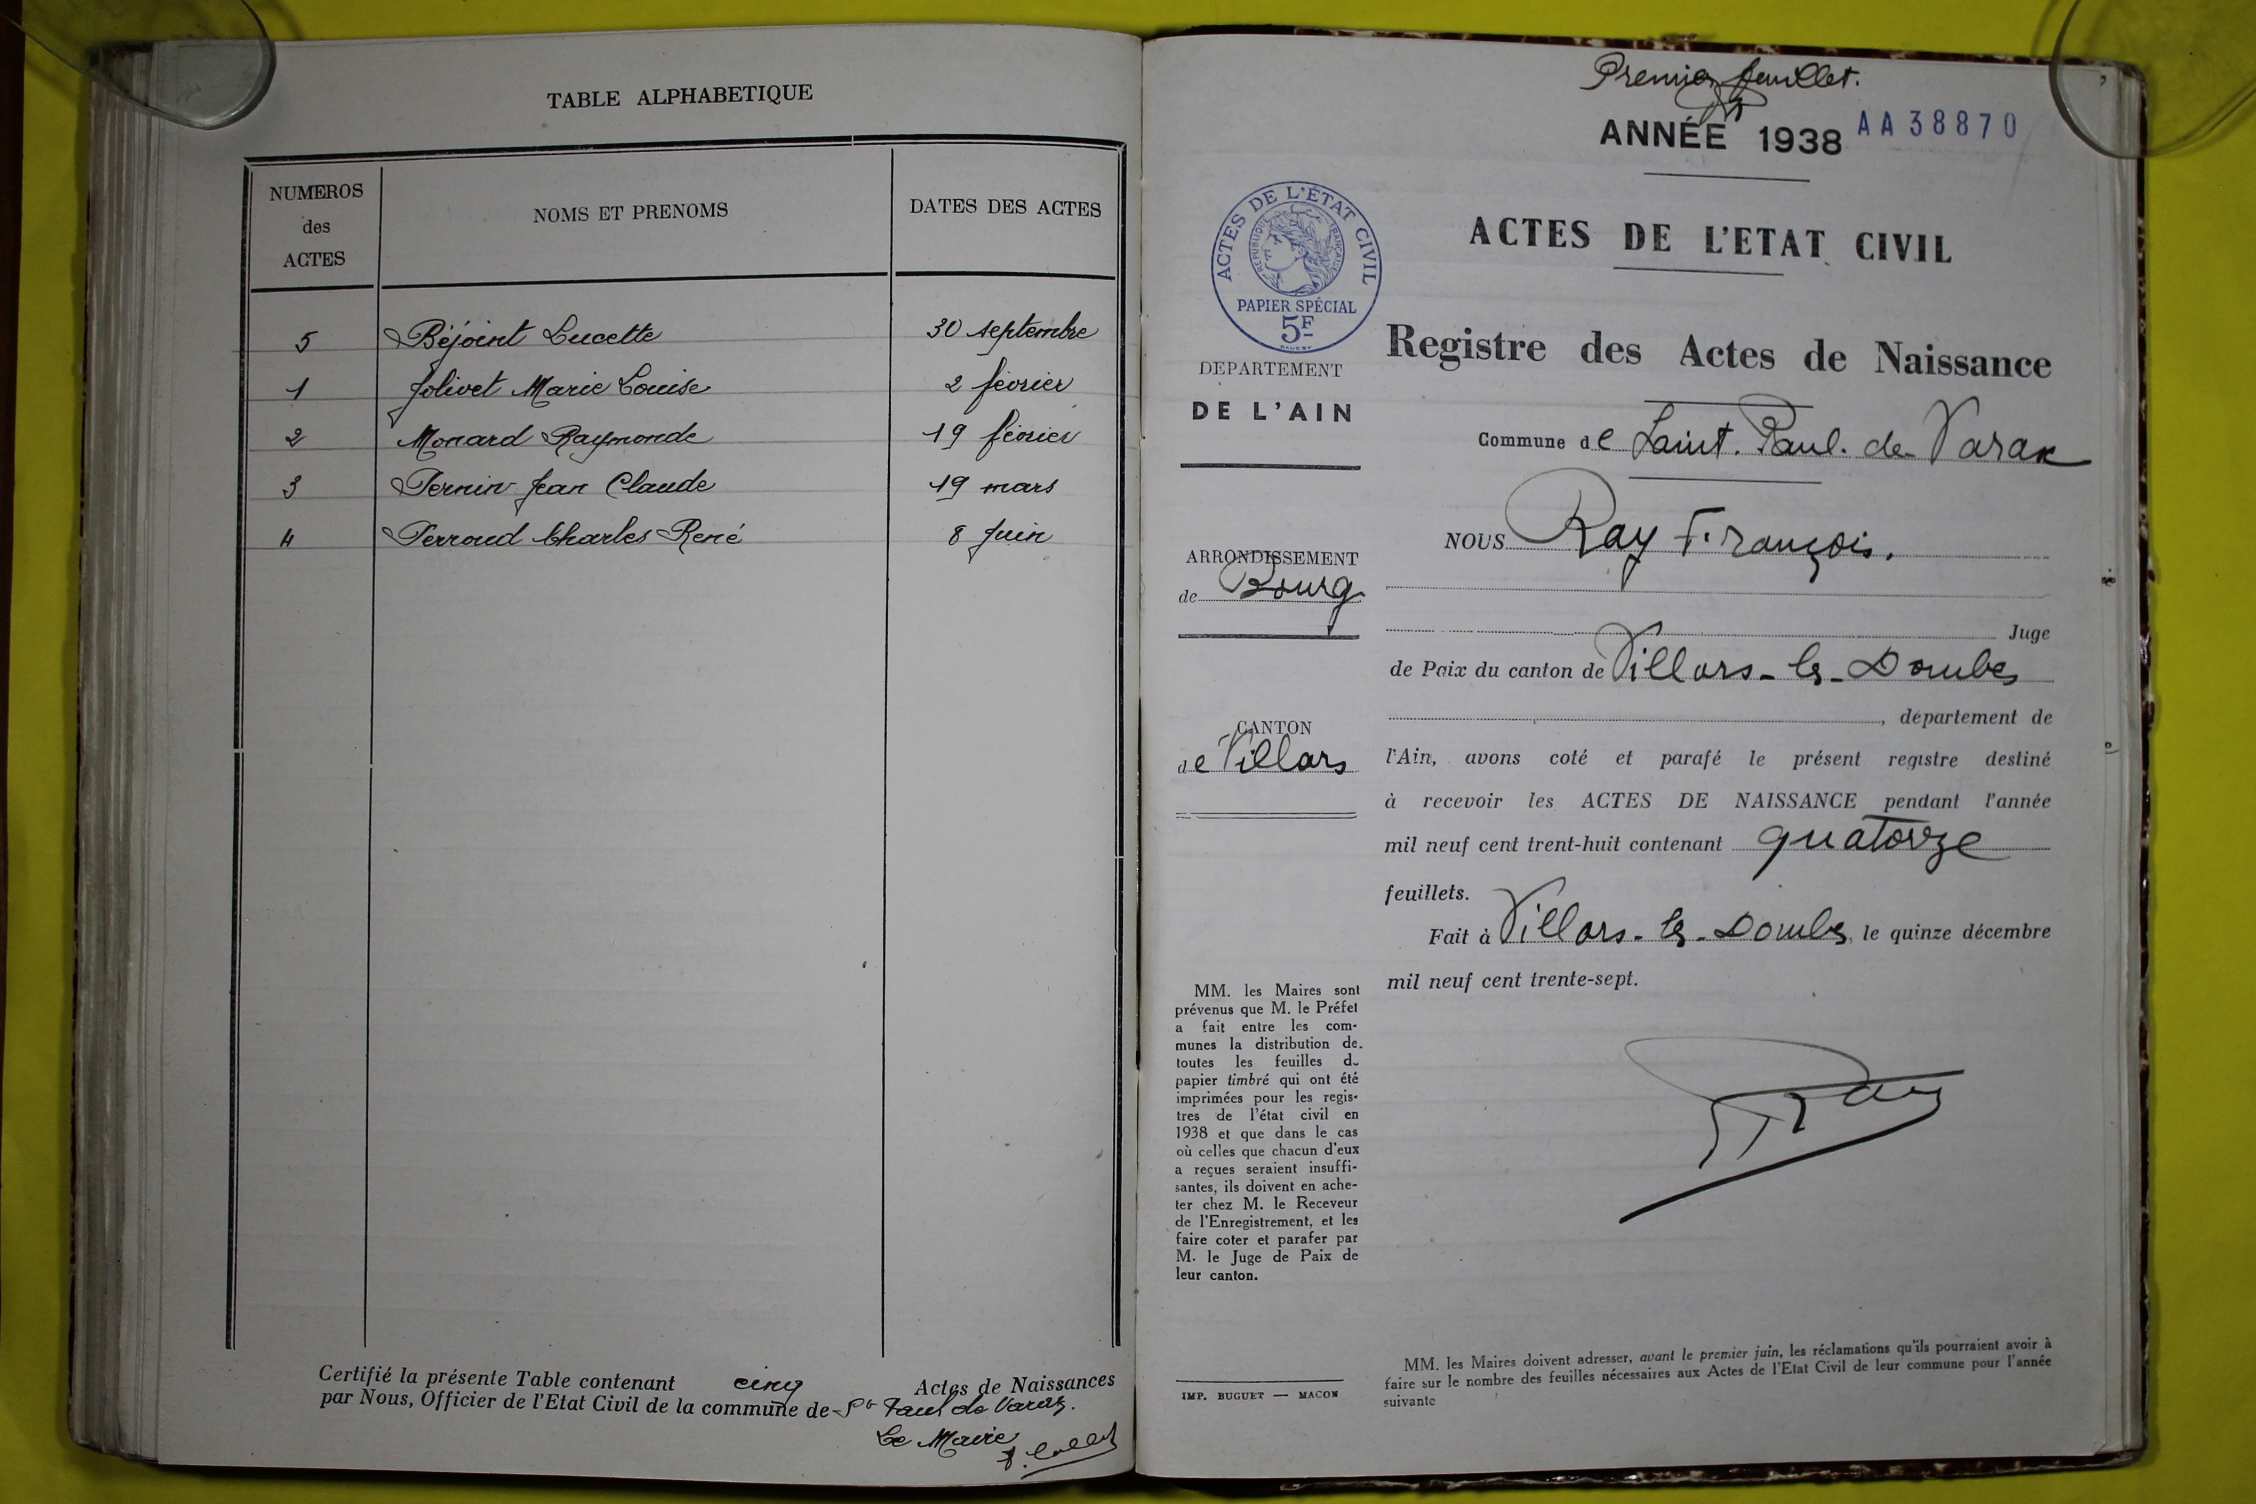 TABLE ALPHABETIQUE
NUMEROS
des
ACTES
NOMS ET PRENOMS
DATES DES ACTES
5 Béjoint Lucette 30 septembre
1 Jolivet Marie Louise 2 février
2 Monard Raymonde 19 février
3 Pernin Jean Claude 19 mars
4 Perroud Charles René 8 Juin
Certifié la présente Table contenant cinq Actes de Naissances
par Nous, Officier de l'Etat Civil de la commune de St Paul de Varax.
Le Maire
Premier feuillet.
ANNÉE 1938 AA38870
ACTES DE L'ÉTAT CIVIL
REPUBLIQUE FRANÇAISE
PAPIER SPÉCIAL
5F
ACTES DE L'ETAT CIVIL
Registre des Actes de Naissance
Commune de Saint. Paul. de Varax
NOUS Ray François.
Juge
de Paix du canton de Villars-les-Dombes
, département de
l'Ain, avons coté et parafé le présent registre destiné
à recevoir les ACTES DE NAISSANCE pendant l'année
mil neuf cent trent-huit contenant quatorze
feuillets.
Fait à Villars-les-Dombes, le quinze décembre
mil neuf cent trente-sept.
Ray
DEPARTEMENT
DE L'AIN
ARRONDISSEMENT
de Bourg
CANTON
de Villars
MM. les Maires sont
prévenus que M. le Préfet
a fait entre les com-
munes la distribution de
toutes les feuilles du
papier timbré qui ont été
imprimées pour les regis-
tres de l'état civil en
1938 et que dans le cas
où celles que chacun d'eux
a reçues seraient insuffi-
santes, ils doivent en ache-
ter chez M. le Receveur
de l'Enregistrement, et les
faire coter et parafer par
M. le Juge de Paix de
leur canton.
IMP. BUGUET — MACON
MM. les Maires doivent adresser, avant le premier juin, les réclamations qu'ils pourraient avoir à
faire sur le nombre des feuilles nécessaires aux Actes de l'Etat Civil de leur commune pour l'année
suivante